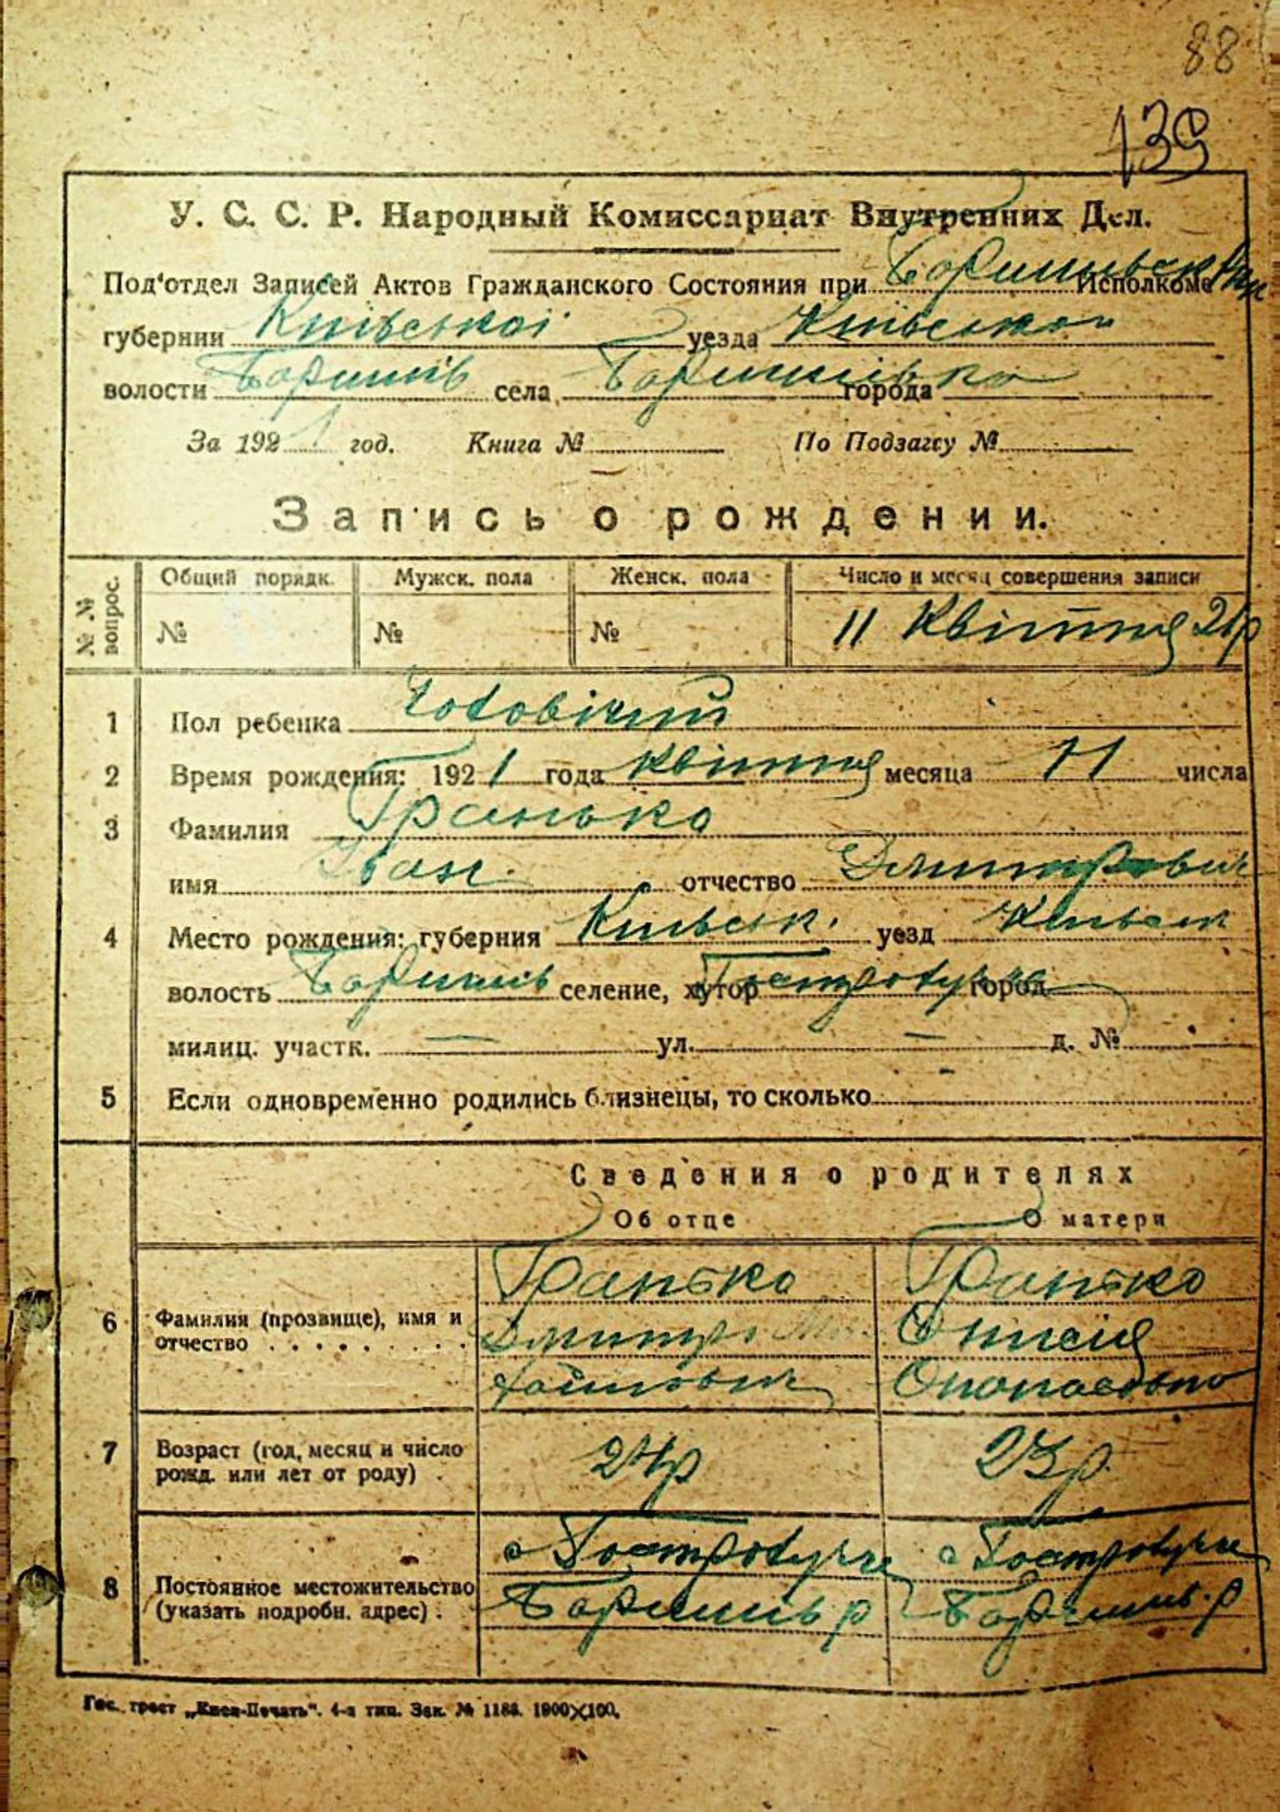 88
139
У. С. С. Р. Народный Комиссариат Внутренних Дел.
Под'отдел Записей Актов Гражданского Состояния при Исполкоме
губернии Київської уезда Київською
волости Баришів села Баришівка города
За 1921 год. Книга № По Подзагсу №
Запись о рождении.
№ № вопрос. Общий порядк. Мужск. пола Женск. пола Число и месяц совершения записи
№ № № 11 Квітня 21р
1 Пол ребенка Чоловічий
2 Время рождения: 1921 года Квітня месяца 11 числа
3 Фамилия Гранько
имя Іван. отчество Дмитрович
4 Место рождения: губерния Київськ. уезд Київськ
волость Баришів селение, хутор город
милиц. участк. — ул. — д. №
5 Если одновременно родились близнецы, то сколько
Сведения о родителях
Об отце О матери
6 Фамилия (прозвище), имя и отчество . . . . . . . . .
Гранько Гранько
Дмитро
7 Возраст (год, месяц и число рожд. или лет от роду) .
24р 23р.
8 Постоянное местожительство (указать подробн. адрес) .
Баришів р Баришів. р
Гос. трест „Киев-Печать“. 4-я тип. Зак. № 1184. 1900×100.